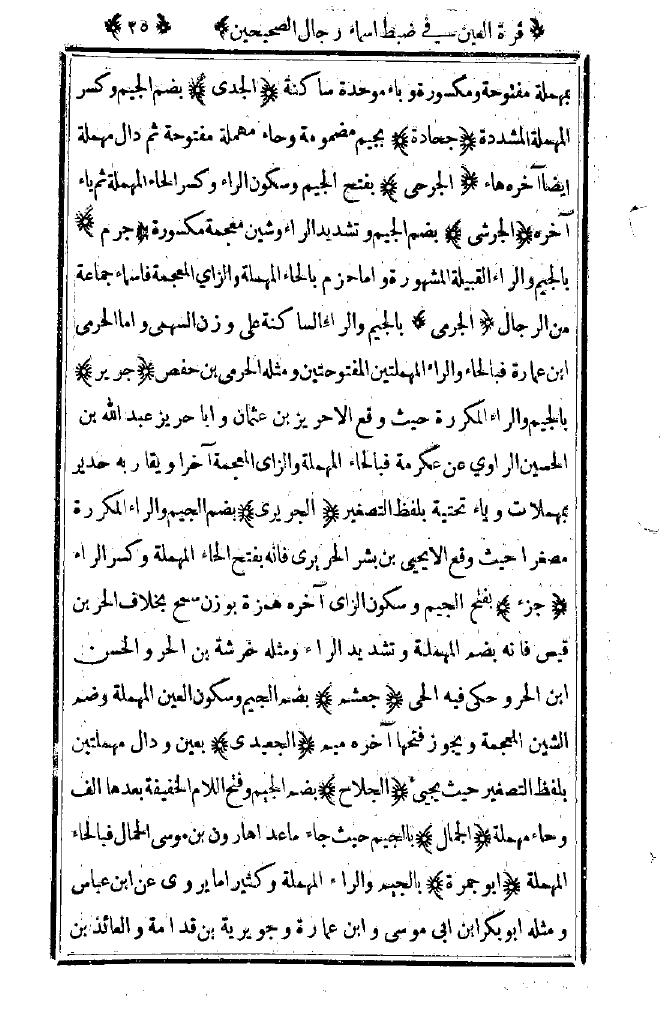 ﴿ قرة العين في ضبط اسماء رجال الصحيحين ﴾ ﴿ ٣٥ ﴾
بمهملة مفتوحة ومكسورة وباء موحدة ساكنة ﴿ الجدى ﴾ بضم الجيم وكسر
المهملة المشددة ﴿ جحادة ﴾ بجيم مضمومة وحاء مهملة مفتوحة ثم دال مهملة
ايضا آخره هاء ﴿ الجرحى ﴾ بفتح الجيم وسكون الراء وكسر الحاء المهملة ثم ياء
آخره ﴿ الجرشى ﴾ بضم الجيم و تشديد الراء وشين معجمة مكسورة ﴿ جرم ﴾
بالجيم والراء القبيلة المشهورة واما حزم بالحاء المهملة والزاي المعجمة فاسماء جماعة
من الرجال ﴿ الجرمى ﴾ بالجيم والراء الساكنة على وزن السهمى واما الحرمى
ابن عمارة فبالحاء والراء المهملتين المفتوحتين ومثله الحرمى بن حفص ﴿ جرير ﴾
بالجيم والراء المكررة حيث وقع الا حريز بن عثمان وابا حريز عبد الله بن
الحسين الراوي عن عكرمة فبالحاء المهملة والزاى المعجمة آخرا ويقاربه حدير
بمهملات وياء تحتية بلفظ التصغير ﴿ الجريرى ﴾ بضم الجيم والراء المكررة
مصغرا حيث وقع الا يحيى بن بشر الحريرى فانه بفتح الحاء المهملة وكسر الراء
﴿ جزء ﴾ بفتح الجيم وسكون الزاى آخره همزة بوزن سمح بخلاف الحر بن
قيس فانه بضم المهملة وتشديد الراء ومثله خرشة بن الحر والحسن
ابن الحر وحكى فيه الحى ﴿ جعشم ﴾ بضم الجيم وسكون العين المهملة وضم
الشين المعجمة ويجوز فتحها آخره ميم ﴿ الجعيدى ﴾ بعين ودال مهملتين
بلفظ التصغير حيث يجيئ ﴿ الجلاح ﴾ بضم الجيم وفتح اللام الخفيفة بعدها الف
وحاء مهملة ﴿ الجمال ﴾ بالجيم حيث جاء ماعدا هارون بن موسى الحمال فبالحاء
المهملة ﴿ ابو جمرة ﴾ بالجيم والراء المهملة وكثيرا ما يروى عن ابن عباس
ومثله ابو بكر ابن ابى موسى وابن عمارة وجويرية بن قدامة والعائذ بن